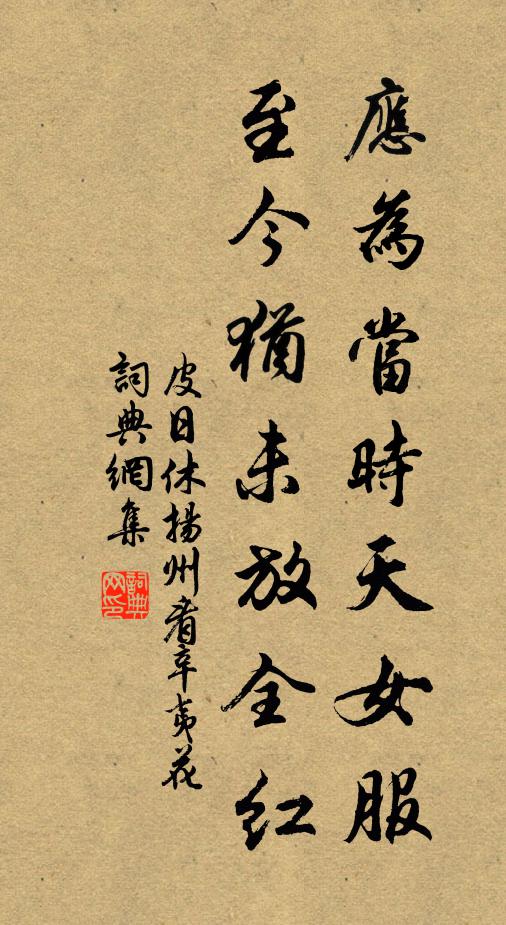 應為當時天女服
至今猶未放全紅
皮日休揚州看辛夷花
詞典網集
詞典網印